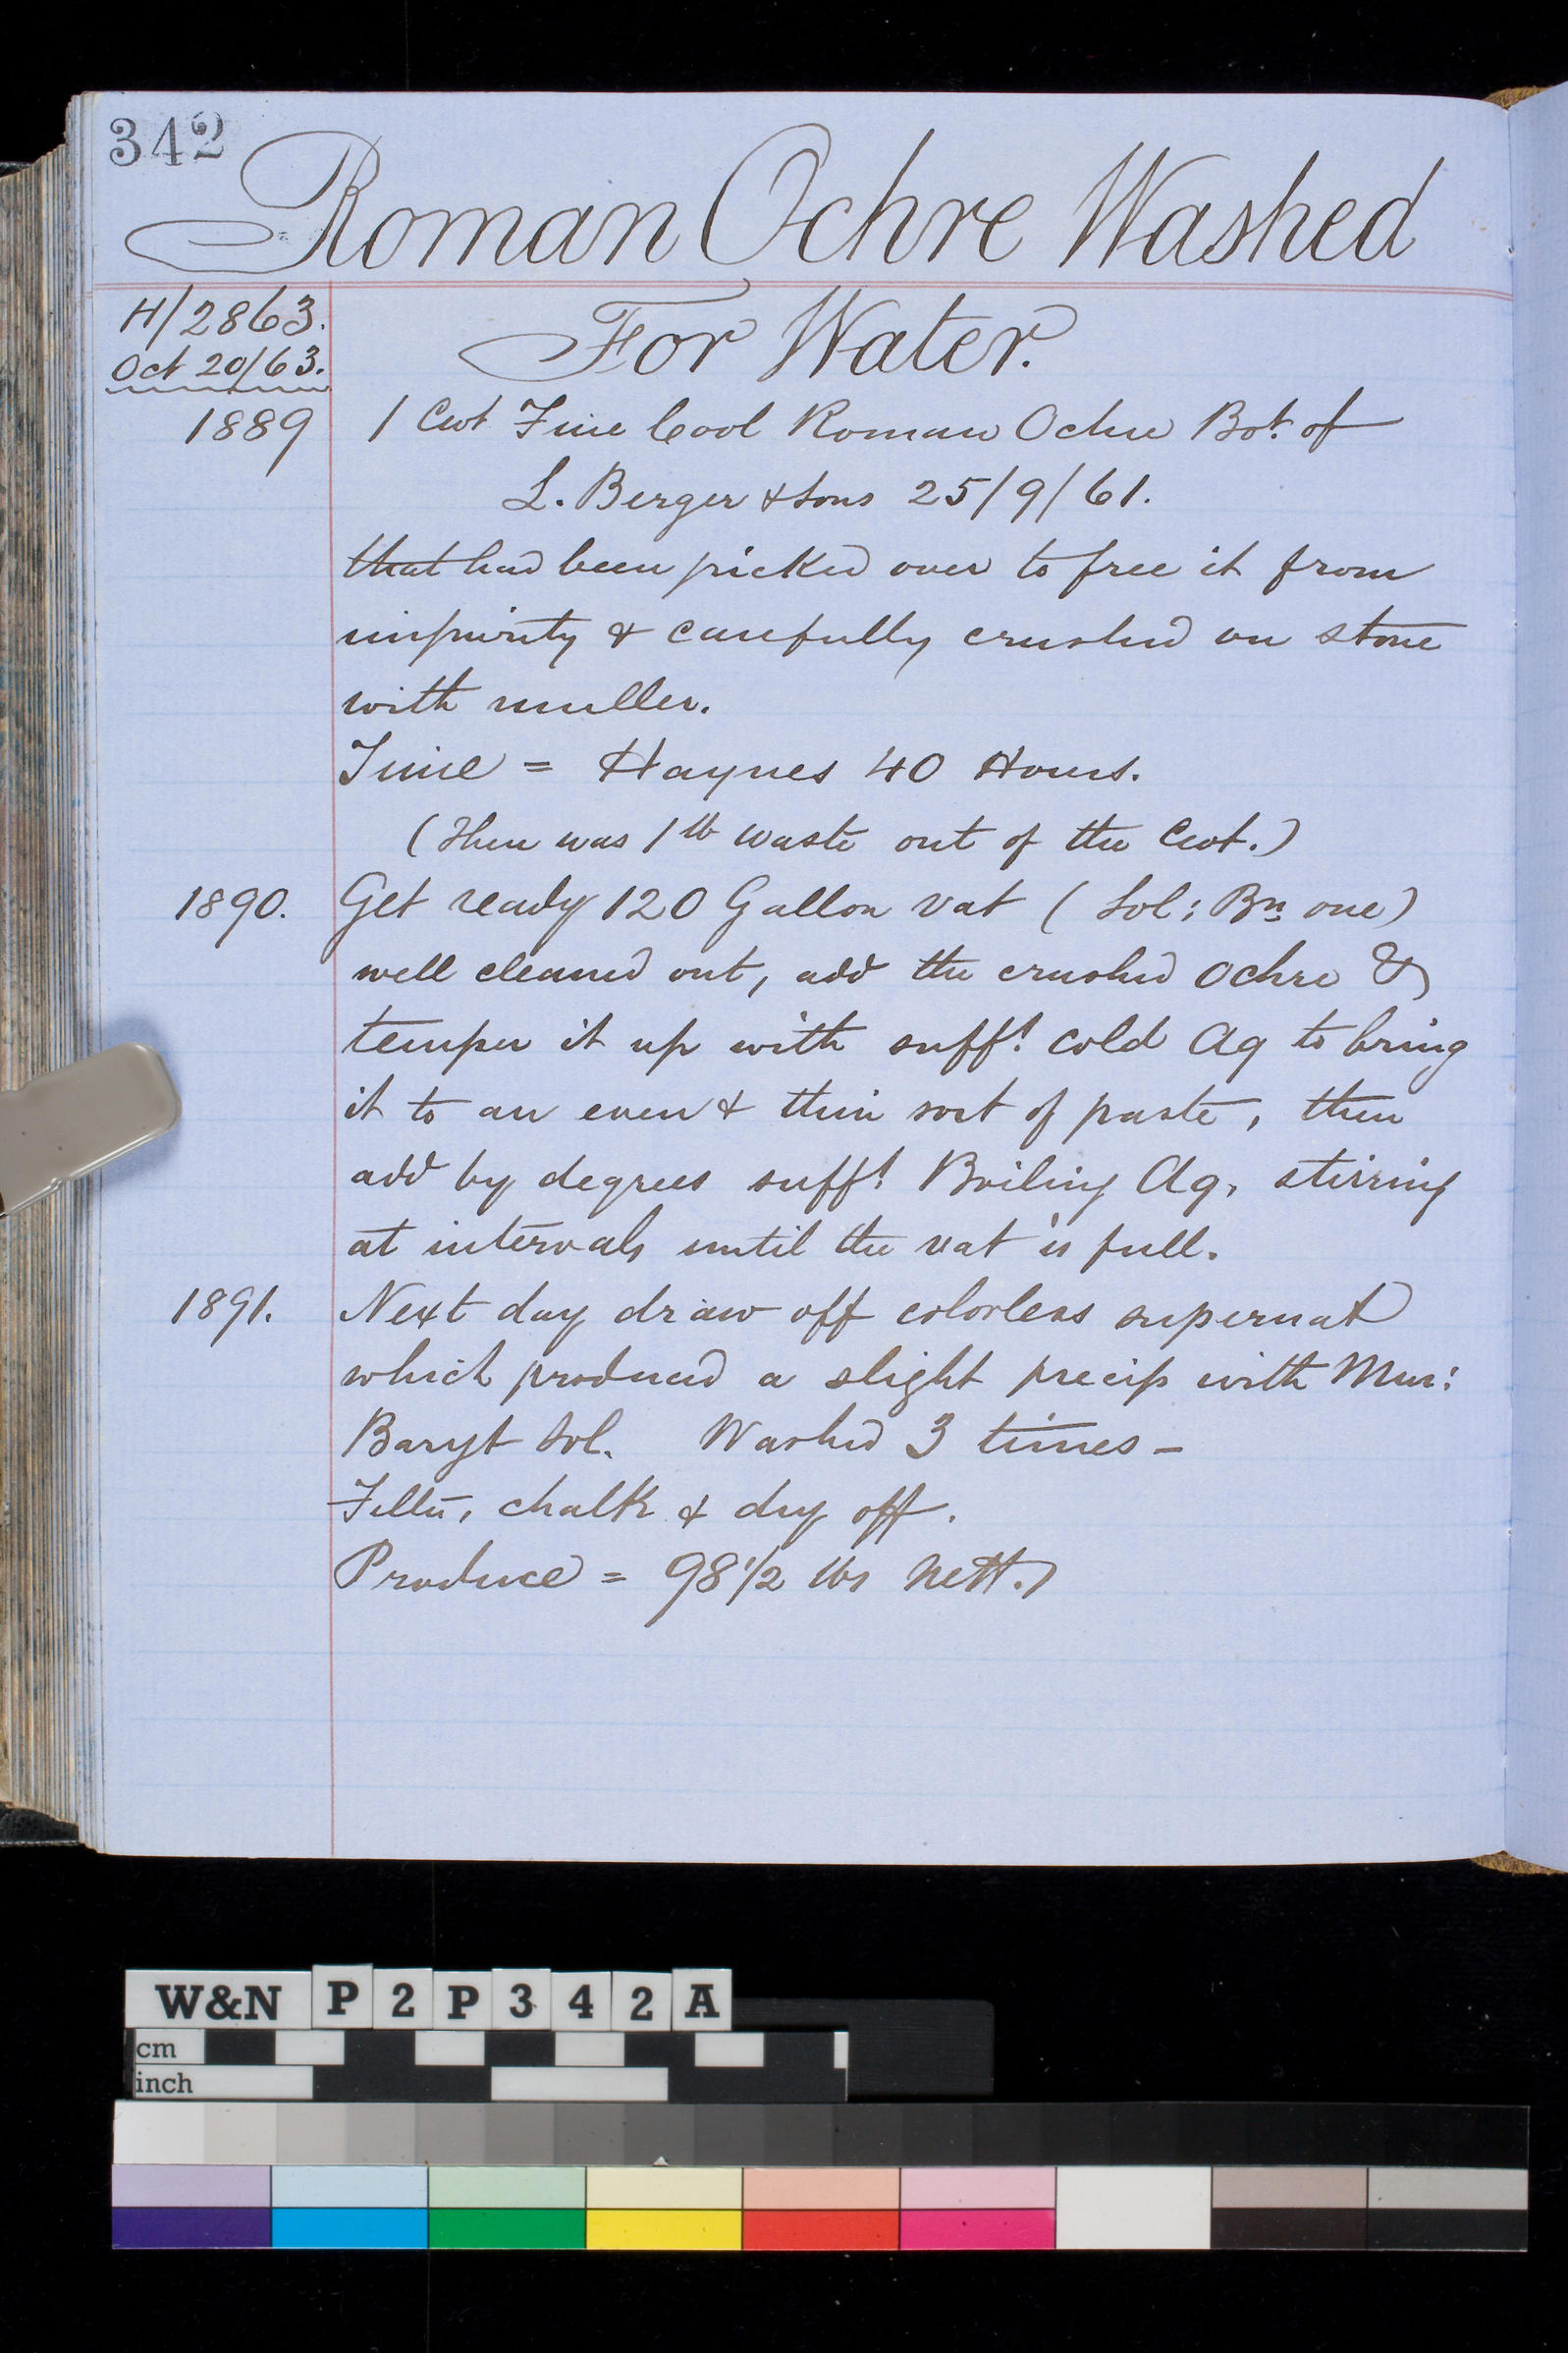 342
Roman Ochre Washed
H/2863.
Oct 20/63.
For Water.
1889 1 Cwt Fine Cool Roman Ochre Bot. of
L. Berger & Sons 25/9/61.
that had been picked over to free it from
impurity & carefully crushed on stone
with muller.
Time = Haynes 40 Hours.
(There was 1 lb waste out of the Cwt.)
1890. Get ready 120 Gallon vat (Sol: Bn one)
well cleaned out, add the crushed Ochre &
temper it up with sufft cold Aq to bring
it to an even & thin sort of paste, then
add by degrees sufft Boiling Aq, stirring
at intervals until the vat is full.
1891. Next day draw off colorless supernat
which produced a slight precip with Mur:
Baryt Sol. Washed 3 times -
Filter, chalk & dry off.
Produce = 98 1/2 lbs Nett.
W&N P2P342A
cm
inch